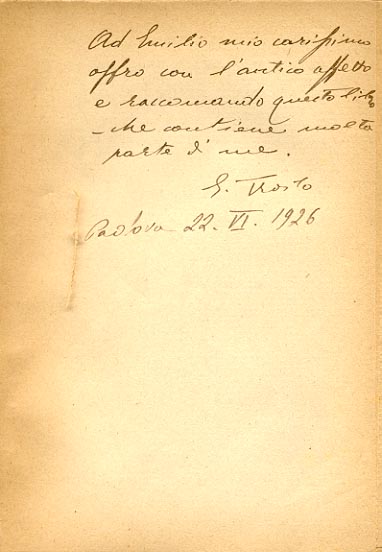 Ad Emilio mio carissimo
offro con l'antico affetto
e raccomando questo libro
- che contiene molta
parte di me.
E. Troilo
Padova 22. VI. 1926